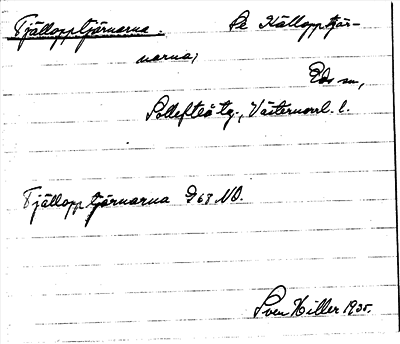 Tjälloppstjärnarna. Se Källoppstjär-
narna,
Eds sn,
Sollefteå tg., Västernorrl. l.
Tjälloppstjärnarna D 63 NO.
Sven Hiller 1935.